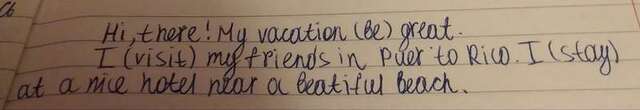 C6
Hi, there! My vacation (be) great.
I (visit) my friends in Puer to Rico. I (stay)
at a nice hotel near a beatiful beach.